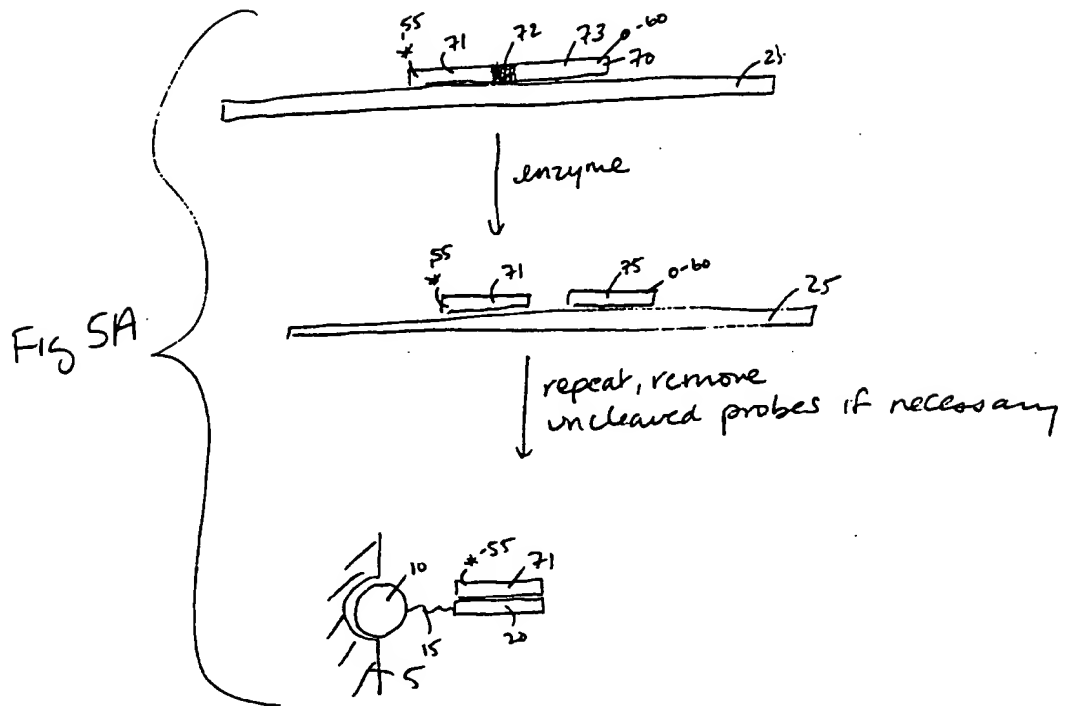 *-55 71 72 73 -60
70 25
enzyme
*55 71 75 -60 25
Fig 5A
repeat, remove
uncleaved probes if necessary
10 *-55 71
15 20
5